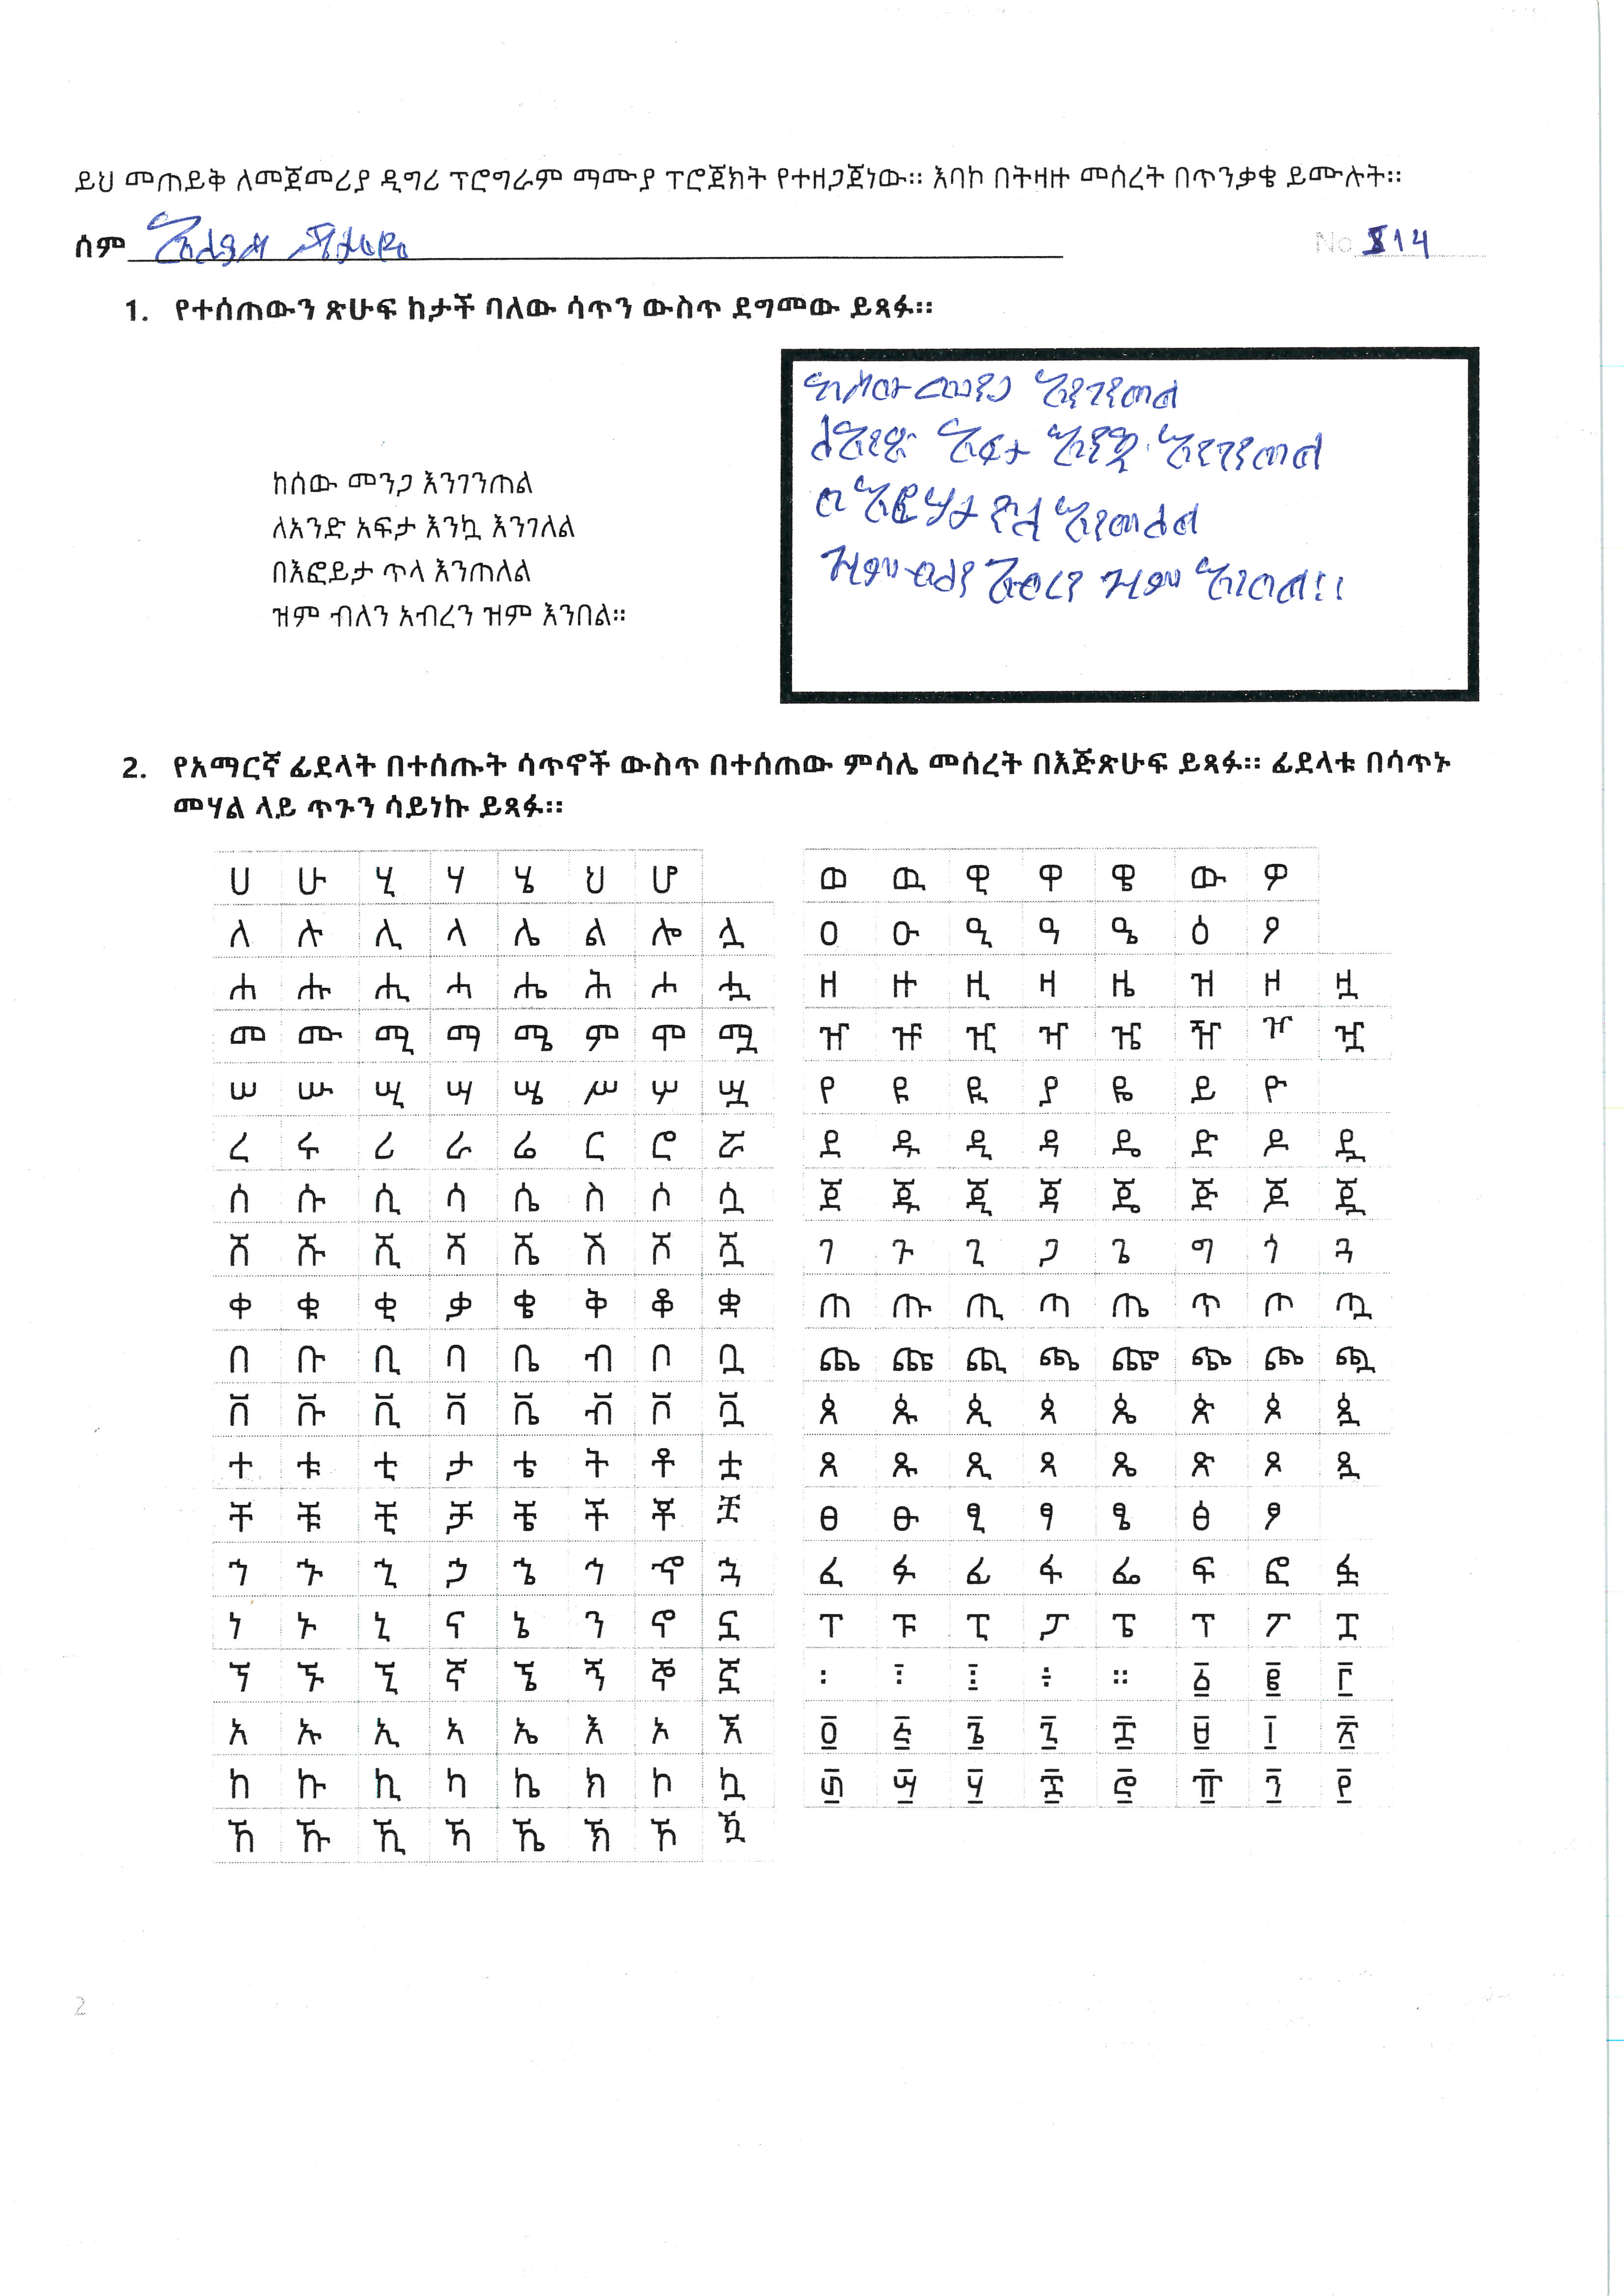 ይህ መጠይቅ ለመጀመሪያ ዲግሪ ፕሮግራም ማሙያ ፕሮጀክት የተዘጋጀነው። እባኮ በትዛዙ መሰረት በጥንቃቄ ይሙሉት።
ስም
No 814
1. የተሰጠውን ጽሁፍ ከታች ባለው ሳጥን ውስጥ ደግመው ይጻፉ።
ከሰው መንጋ እንገንጠል
ለአንድ አፍታ እንኳ እንገለል
በእፎይታ ጥላ እንጠለል
ዝም ብለን አብረን ዝም እንበል።
ከሰው መንጋ እንገንጠል
ለአንድ አፍታ እንኳ እንገንጠል
በእፎይታ ጥላ እንጠለል
ዝም ብለን አብረን ዝም እንበል።
2. የአማርኛ ፊደላት በተሰጡት ሳጥኖች ውስጥ በተሰጠው ምሳሌ መሰረት በእጅጽሁፍ ይጻፉ። ፊደላቱ በሳጥኑ
መሃል ላይ ጥጉን ሳይነኩ ይጻፉ።
ሀ ሁ ሂ ሃ ሄ ህ ሆ
ለ ሉ ሊ ላ ሌ ል ሎ ሏ
ሐ ሑ ሒ ሓ ሔ ሕ ሖ ሗ
መ ሙ ሚ ማ ሜ ም ሞ ሟ
ሠ ሡ ሢ ሣ ሤ ሥ ሦ ሧ
ረ ሩ ሪ ራ ሬ ር ሮ ሯ
ሰ ሱ ሲ ሳ ሴ ስ ሶ ሷ
ሸ ሹ ሺ ሻ ሼ ሽ ሾ ሿ
ቀ ቁ ቂ ቃ ቄ ቅ ቆ ቋ
በ ቡ ቢ ባ ቤ ብ ቦ ቧ
ቨ ቩ ቪ ቫ ቬ ቭ ቮ ቯ
ተ ቱ ቲ ታ ቴ ት ቶ ቷ
ቸ ቹ ቺ ቻ ቼ ች ቾ ቿ
ኀ ኁ ኂ ኃ ኄ ኅ ኆ ኋ
ነ ኑ ኒ ና ኔ ን ኖ ኗ
ኘ ኙ ኚ ኛ ኜ ኝ ኞ ኟ
አ ኡ ኢ ኣ ኤ እ ኦ ኧ
ከ ኩ ኪ ካ ኬ ክ ኮ ኳ
ኸ ኹ ኺ ኻ ኼ ኽ ኾ ዃ
ወ ዉ ዊ ዋ ዌ ው ዎ
ዐ ዑ ዒ ዓ ዔ ዕ ዖ
ዘ ዙ ዚ ዛ ዜ ዝ ዞ ዟ
ዠ ዡ ዢ ዣ ዤ ዥ ዦ ዧ
የ ዩ ዪ ያ ዬ ይ ዮ
ደ ዱ ዲ ዳ ዴ ድ ዶ ዷ
ጀ ጁ ጂ ጃ ጄ ጅ ጆ ጇ
ገ ጉ ጊ ጋ ጌ ግ ጎ ጓ
ጠ ጡ ጢ ጣ ጤ ጥ ጦ ጧ
ጨ ጩ ጪ ጫ ጬ ጭ ጮ ጯ
ጰ ጱ ጲ ጳ ጴ ጵ ጶ ጷ
ጸ ጹ ጺ ጻ ጼ ጽ ጾ ጿ
ፀ ፁ ፂ ፃ ፄ ፅ ፆ
ፈ ፉ ፊ ፋ ፌ ፍ ፎ ፏ
ፐ ፑ ፒ ፓ ፔ ፕ ፖ ፗ
፡ ፧ ፤ ፥ ። ፩ ፪ ፫
፬ ፭ ፮ ፯ ፰ ፱ ፲ ፳
፴ ፵ ፶ ፷ ፸ ፹ ፺ ፻
2